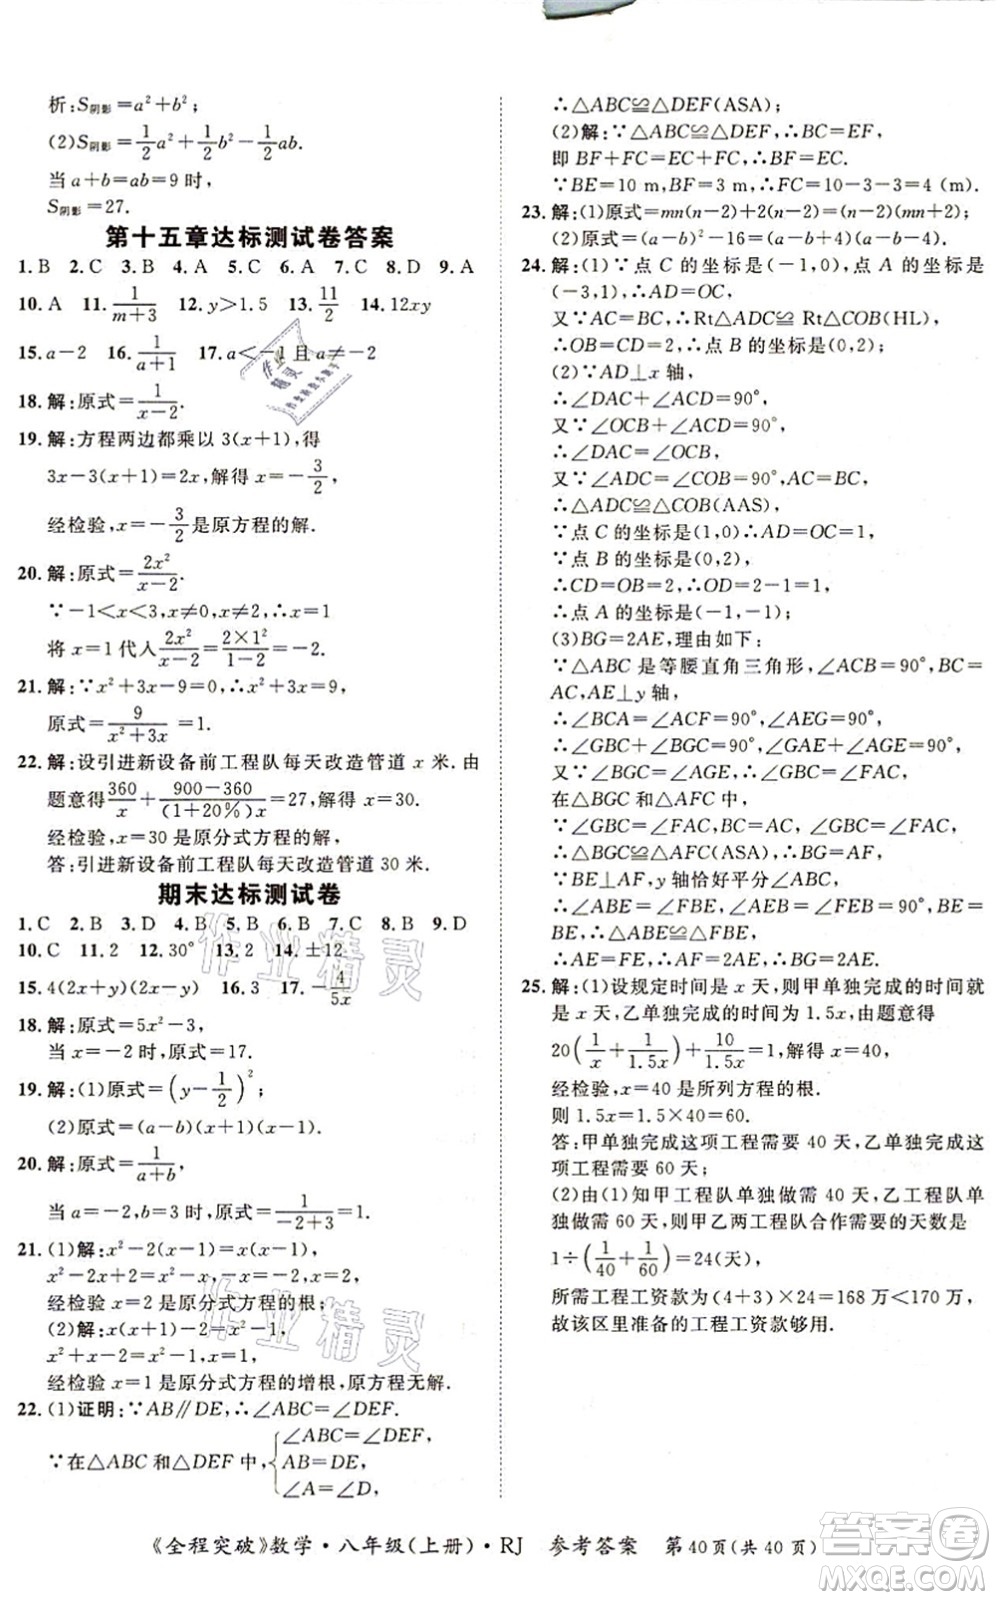 析:S阴影=a²+b²;
(2)S阴影=1/2a²+1/2b²-1/2ab.
当 a+b=ab=9 时,
S阴影=27.
第十五章达标测试卷答案
1. B 2. C 3. B 4. A 5. C 6. A 7. C 8. D 9. A
10. A 11. 1/(m+3) 12. y>1.5 13. 11/2 14. 12xy
15. a-2 16. 1/(a+1) 17. a<-1 且 a≠-2
18. 解:原式=1/(x-2).
19. 解:方程两边都乘以 3(x+1),得
3x-3(x+1)=2x,解得 x=-3/2,
经检验,x=-3/2是原方程的解.
20. 解:原式=2x²/(x-2).
∵-1<x<3,x≠0,x≠2,∴x=1
将 x=1 代人 2x²/(x-2)=(2×1²)/(1-2)=-2.
21. 解:∵x²+3x-9=0,∴x²+3x=9,
原式=9/(x²+3x)=1.
22. 解:设引进新设备前工程队每天改造管道 x 米.由
题意得360/x+(900-360)/((1+20%)x)=27,解得 x=30.
经检验,x=30 是原分式方程的解,
答:引进新设备前工程队每天改造管道 30 米.
期末达标测试卷
1. C 2. B 3. D 4. B 5. B 6. B 7. D 8. B 9. D
10. C 11. 2 12. 30° 13. 2 14. ±12
15. 4(2x+y)(2x-y) 16. 3 17. -4/(5x)
18. 解:原式=5x²-3,
当 x=-2 时,原式=17.
19. 解:(1)原式=(y-1/2)²;
(2)原式=(a-b)(x-y)(x+y).
20. 解:原式=1/(a+b),
当 a=-2,b=3 时,原式=1/(-2+3)=1.
21. (1)解:x²-2(x-1)=x(x-1),
x²-2x+2=x²-x,-x=-2,x=2,
经检验 x=2 是原分式方程的根;
(2)解:x(x+1)=2x²-(x²-1),
x²+x=x²+1,x=1,
经检验 x=1 是原分式方程的增根,原方程无解.
22. (1)证明:∵AB∥DE,∴∠ABC=∠DEF.
∵在△ABC 和△DEF 中{∠ABC=∠DEF,
AB=DE,
∠A=∠D,
∴△ABC≌△DEF(ASA);
(2)解:∵△ABC≌△DEF,∴BC=EF,
即 BF+FC=EC+FC,∴BF=EC.
∵BE=10 m,BF=3 m,∴FC=10-3-3=4 (m).
23. 解:(1)原式=mn(n-2)+(n-2)=(n-2)(mn+1);
(2)原式=(a-b)²-16=(a-b+4)(a-b-4).
24. 解:(1)∵点 C 的坐标是(-1,0),点 A 的坐标是
(-3,1),∴AD=OC,
又∵AC=BC,∴Rt△ADC≌△COB(HL),
∴OB=CD=2,∴点 B 的坐标是(0,2);
(2)∵AD⊥x 轴,
∴∠DAC+∠ACD=90°,
又∵∠OCB+∠ACD=90°,
∴∠DAC=∠OCB,
又∵∠ADC=∠COB=90°,AC=BC,
∴△ADC≌△COB(AAS),
∵点 C 的坐标是(1,0)∴AD=OC=1,
∵点 B 的坐标是(0,2),
∴CD=OB=2,∴OD=2-1=1,
∴点 A 的坐标是(-1,-1);
(3)BG=2AE,理由如下:
∵△ABC 是等腰直角三角形,∠ACB=90°,BC=
AC,AE⊥y 轴,
∴∠BCA=∠ACF=90°,∠AEG=90°,
∴∠GBC+∠BGC=90°,∠GAE+∠AGE=90°,
又∵∠BGC=∠AGE,∴∠GBC=∠FAC,
在△BGC 和△AFC 中,
∵∠GBC=∠FAC,BC=AC,∠BCA=∠ACF,
∴△BGC≌△AFC(ASA),∴BG=AF,
∵BE⊥AF,y 轴恰好平分∠ABC,BE=BE,
∴△ABE≌△FBE,
∴AE=FE,∴AF=2AE,∴BG=2AE.
25. 解:(1)设规定时间是 x 天,则甲单独完成的时间就
是 x 天,乙单独完成的时间为 1.5x,由题意得
20(1/x+1/1.5x)+10/1.5x=1,解得 x=40,
经检验,x=40 是所列方程的根.
则 1.5x=1.5×40=60.
答:甲单独完成这项工程需要 40 天,乙单独完成这
项工程需要 60 天;
(2)由(1)知甲工程队单独做需 40 天,乙工程队单
独做需 60 天,则甲乙两工程队合作需要的天数是
1÷(1/40+1/60)=24(天),
所需工程工资款为(4+3)×24=168 万<170 万,
故该区里准备的工程工资款够用.
《全程突破》数学·八年级(上册)·RJ 参考答案 第40页(共 40 页)
作业精灵
作业精灵
作业精灵
答案圈
MXQE.COM